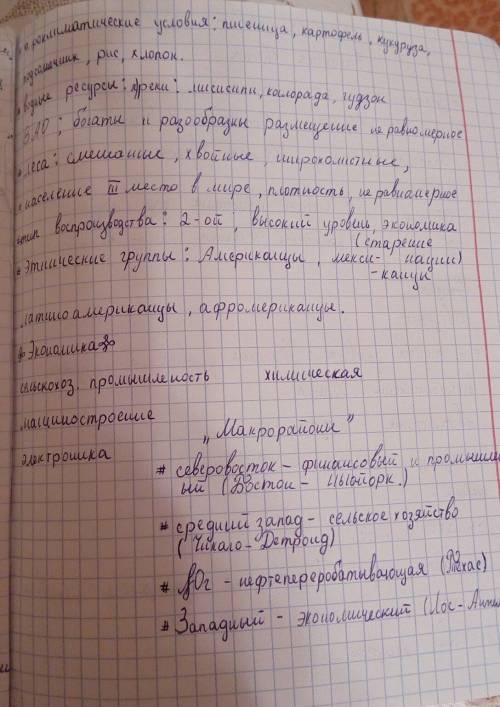 агроклиматические условия: пшеница, картофель, кукуруза,
подсолнчник, рис, хлопок.
водные ресурсы: реки: мисисипи, колорада, гудзон
ЗАО; богаты и разообразны размещение не равномерное
леса: смешаные, хвойные, широколистные,
население III место в мире, плотность, не равнамерное
тип воспроизводства: 2-ой, высокий уровень, экономика
(старение
этнические группы: Американцы, мекси- нации)
-канцы
латиноамериканцы, афромериканцы.
Экономика
сельскохоз. промышленость химическая
машиностроение
„Макрорайоны"
электроника
# северовосток - финансовый и промышлен
ый (Бостон - Ньюйорк.)
# средний запад - сельское хозяйство
(Чикаго - Детроид)
# Юг - нефтеперерабатывающая (Техас)
# Западный - экономический (Лос-Анж